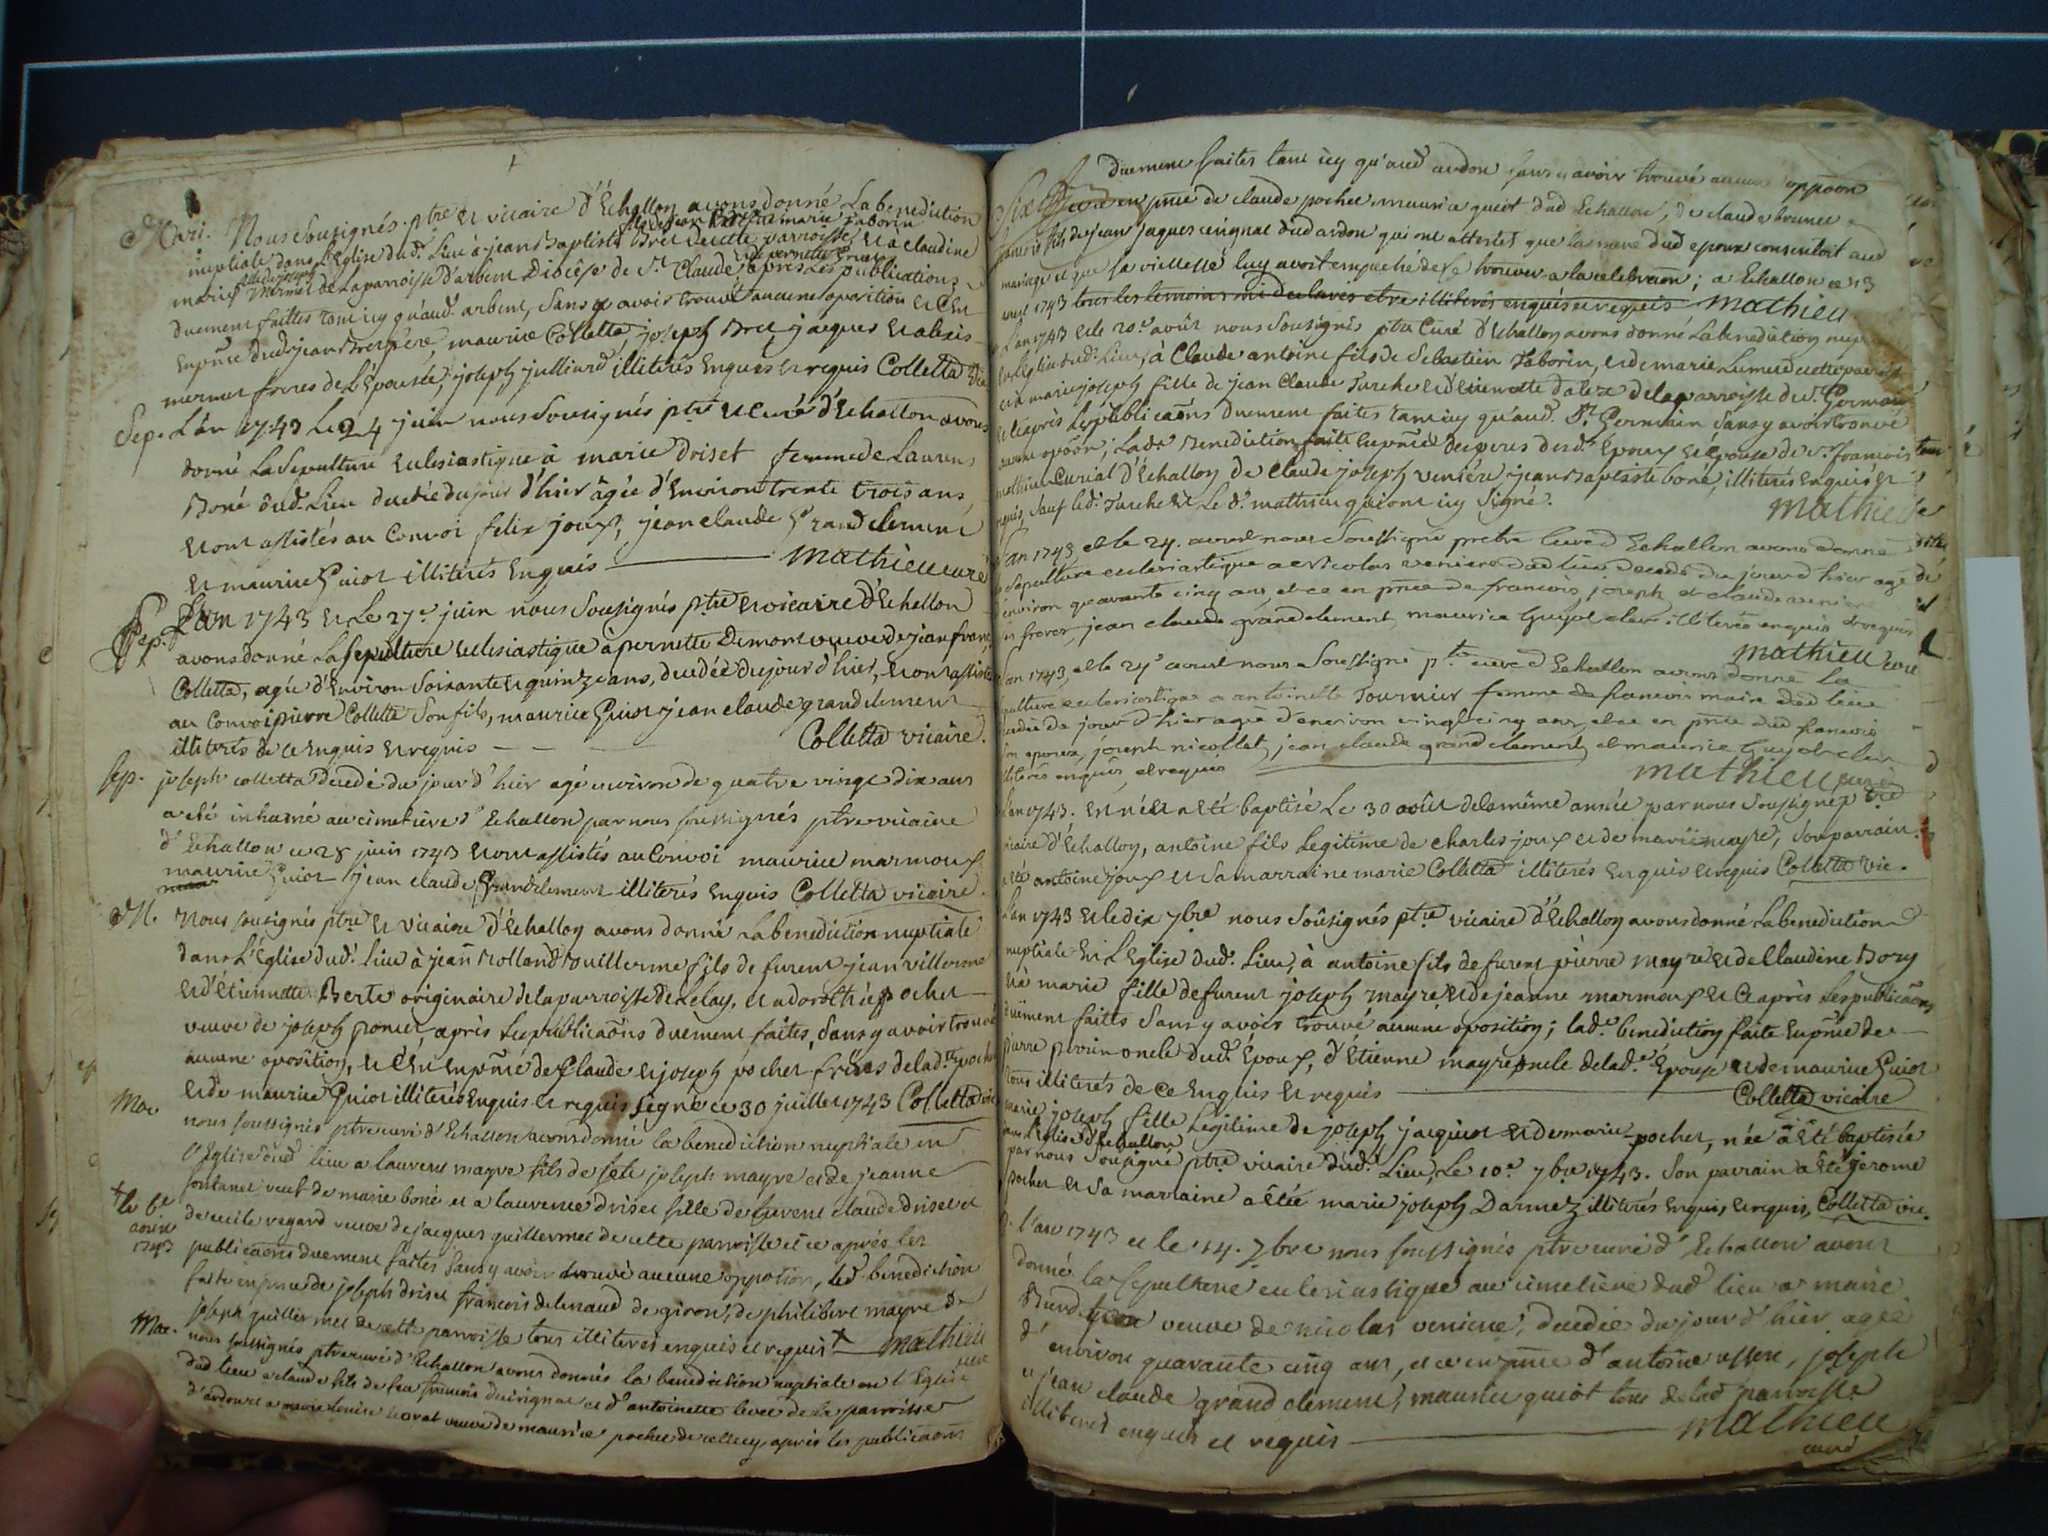 Mari. Nous sousignés ptre et vicaire d'Échallon avons donné La benediction
fils de jean marie Taborin
nuptiale dans L'Eglise dud. Lieu à jean Baptiste Bret de cette parroisse et à claudine
marie Mermet de La parroisse d'arbent Diocèse de St. Claude, après Les publications
duement faittes tant icy qu'aud. arbent, Sans y avoir trouvé aucune oposition et C'en
Enpñce dud. jean Bret père, maurice Colletta, joseph Bret, jacques et alexis
mermet freres de L'Epousée, joseph julliard illiterés Enquis et requis Colletta vic.
Sep. L'an 1743 Le 24 juin nous Sousignés ptre et Curé d'Echallon avons
donné La Sepulture Eclesiastique à marie Driset femme de Laurens
Boné dud. Lieu decedée du jour d'hier âgée d'Environ trente trois ans,
et ont assistés au Convoi felix joux, jean claude Grandclement
et maurice Guiot illiterés Enquis Mathieu curé
Sep. L'an 1743 et Le 27e juin nous Sousignés ptre et vicaire d'Echallon
avons donné La Sepulture Eclesiastique à pernette Demont veuve de jean franc.
Colletta, agée d'Environ Soixante et quinze ans, decédée du jour d'hier, et ont assistés
au Convoi pierre Colletta Son fils, maurice Guiot jean claude grandclement
illiterés de ce Enquis et requis Colletta vicaire.
Sep. joseph colletta decedé du jour d'hier agé environ de quatre vingt dix ans
a eté inhumé au cimetière d'Echallon par nous soussignés ptre vicaire
d'Echallon ce 28 juin 1743 et ont assistés au Convoi maurice marmoux
maurice Guiot jean claude Grandclement illiterés Enquis Colletta vicaire.
M. Nous sousignés ptre et vicaire d'Échallon avons donné La benediction nuptiale
dans L'Eglise dud. lieu à jean Rolland Vuillerme fils de furent jean villerme
et d'étiennette Berte originaire de la parroisse de Lelay, et a dorothée pochet
veuve de joseph poncet, après Les publicaõns duement faites, Sans y avoir trouvé
aucune oposition, et C'en Enpñce de Claude et joseph pochet frères de lad. pochet
et de maurice Guiot illiterés Enquis et requis Signé ce 30 juillet 1743 Colletta vic
Mar nous soussignés ptre curé d'Echallon avons donné la benediction nuptiale en
l'Eglise dud lieu a laurent mayre fils de feu joseph mayre et de jeanne
fontanet veuf de marie boné et a laurence driset fille de furent claude driset et
†le 6e
aout
1743
de cecile regard veuve de jacques guillermet de cette parroisse et ce après les
publicaõns duement faites sans y avoir trouvé aucune oppotion, led. benediction
faite en pnce de joseph driset francois delenaud de giron, de philibert mayre de
joseph guillermet de cette parroisse tous illiteres enquis et requis † Mathieu
curé
Mar. nous soussignés ptre curé d'Echallon avons donnés la benediction nuptiale en l'Eglise
dud lieu a claude fils de feu francois cuirignat et d'antoinette levet de la parroisse
d'ardon et a marie louise morat veuve de maurice pochet de cellecy, après les publicaons
duement faites tant icy qu'aud ardon sans y avoir trouvé aucune oppoon
en pnce de claude pochet maurice guiot dud Echallon, de claude brunet
fils de jean jaques cuirignat dud ardon qui ont attestés que la mere dud epoux consentoit aud
mariage et que sa viellesse luy avoit empeché de se trouver a la celebraon; a Echallon ce 13
aout 1743 tous les temoins mi declarés etre illiterés enquis et requis Mathieu
L'an 1743 et le 20e août nous Sousignés ptre Curé d'Echallon avons donné La benediction nup
en L'Eglise dud. Lieu, à Claude antoine fils de Sebastien Taborin, et de marie Lumet de cette parroisse
et à marie joseph fille de jean Claude Turche et d'étiennette dalex de La parroisse de St. Germain
et C'après Les publicaõns duement faites tant icy qu'aud. St. Germain Sans y avoir trouvé
aucune opoõn; Lad. Benediction faite Enpñce des peres desd. Epoux et Epouse de Sr. francois
mathieu Curial d'Echallon de Claude joseph veniere jean Baptiste boné, illiterés Enquis et
requis, Sauf led. Turche et Le d. mathieu qui ont icy Signé.
Mathieu
L'an 1743 et le 24. aout nous Soussigné pretre curé d'Echallon avons donné
la Sepulture ecclesiastique a Nicolas veniere dud lieu decedé du jour d'hier agé
d'environ quarante cinq ans, et ce en pnce de francois, joseph et claude venier
ses freres, jean claude grandclement, maurice Guyot clerc illiterés enquis et requis
Mathieu curé
L'an 1743, et le 29e aout nous Soussigné ptre curé d'Echallon avons donné La
sepulture ecclesiastique a antoinette Tournier femme de francois maire dud lieu
decedée de jour d'hier agée d'environ vingt cinq ans, et ce en pnce dud francois
son epoux, joseph nicollet, jean claude grandclement et maurice Guyot clerc
illiterés enquis, et requis Mathieu curé
L'an 1743. Et né et a Eté baptisé Le 30 août de la même année par nous Soussigné ptre
vicaire d'Échallon, antoine fils Legitime de charles joux et de marie mayre, Son parrain
a été antoine joux et Sa marraine marie Colletta illiterés Enquis et requis Colletta vic.
L'an 1743 et le dix 7bre nous Soûsignés ptre vicaire d'Echallon avons donné La benediction
nuptiale En L'Eglise dud. Lieu, à antoine fils de furent pierre mayre et de Claudine Bory
et à marie fille de furent joseph mayre et de jeanne marmoux et C'après Les publicaõns
duement faittes Sans y avoir trouvé aucune oposition; lad.e benediction faite Enpñce de
pierre perrin oncle dud. Époux, d'Étienne mayre oncle de lad. Epouse et de maurice Guiot
tous illiterés de ce Enquis et requis Colletta vicaire
marie joseph fille Legitime de joseph jacquiot et de marie pochet, née a Eté baptisée
dans L'Eglise d'Echallon
par nous Sousigné ptre vicaire dud. Lieu, Le 10e 7bre 1743. Son parrain a Eté jerome
pochet et Sa marraine a Eté marie joseph Darmez illiterés Enquis, et requis, Colletta vic.
l'an 1743 et le 14. 7bre nous soussignés ptre curé d'Echallon avons
donné la Sepulture ecclesiastique au cimetiere dud lieu a marie
veuve de nicolas veniere, decedée du jour d'hier agée
d'environ quarante cinq ans, et ce en pnce d'antoine ussen, joseph
et jean claude grand clement, maurice guiot tous de lad parroisse
illiterés enquis et requis Mathieu
curé